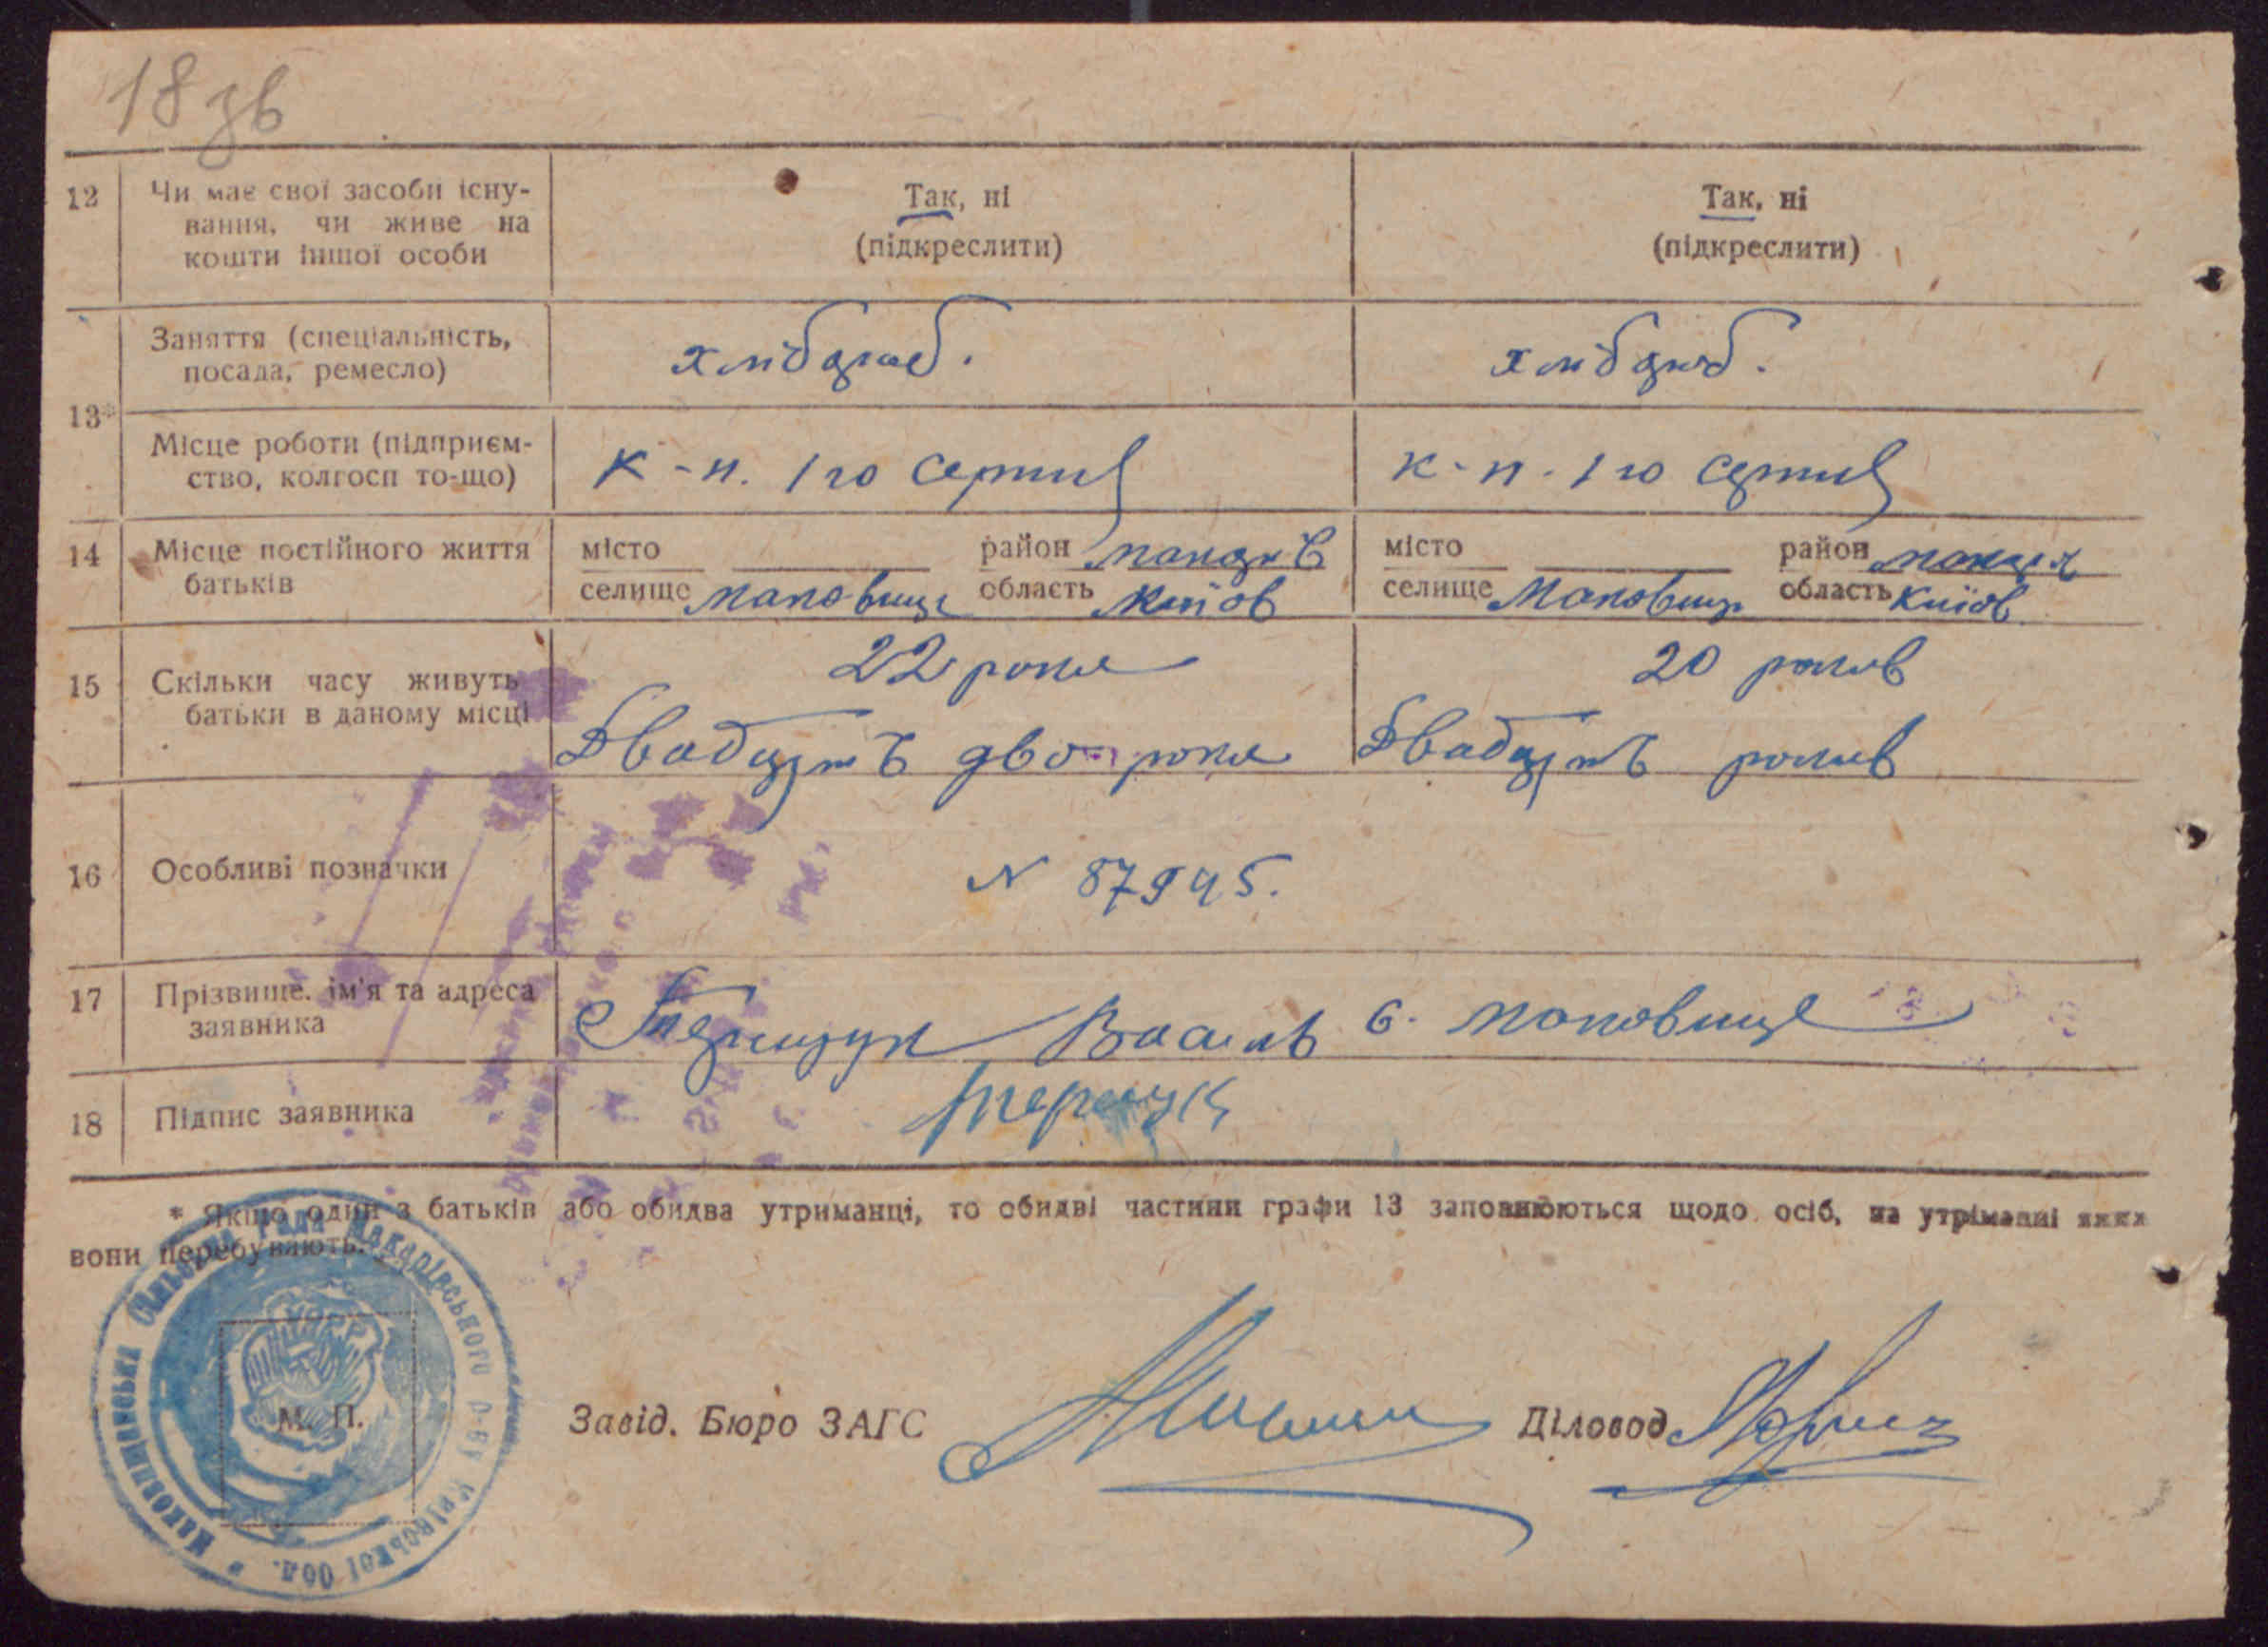 18 зв
12 Чи має свої засоби існу- Так, ні Так, ні
вання, чи живе на
кошти іншої особи (підкреслити) (підкреслити)
Заняття (спеціальність, хлібороб. хлібороб.
посада, ремесло)
13*
Місце роботи (підприєм- к-п. 1го серпня к-п. 1го серпня
ство, колгосп то-що)
14 Місце постійного життя місто район макарів місто район
батьків селище Маковище область Київ селище Маковище область Київ
15 Скільки часу живуть 22 роки 20 років
батьки в даному місці Двадцять два роки Двадцять років
16 Особливі позначки N 87945.
17 Прізвище. ім'я та адреса Терещук Василь с. Маковище
заявника
18 Підпис заявника Терещук
* Якщо один з батьків або обидва утриманці, то обидві частини графи 13 заповнюються щодо осіб, на утріманні яких
вони перебувають.
Маковищанська Сільська Рада Макарівського р-ну Київської Обл.
УСРР
М. П.
Завід. Бюро ЗАГС Діловод